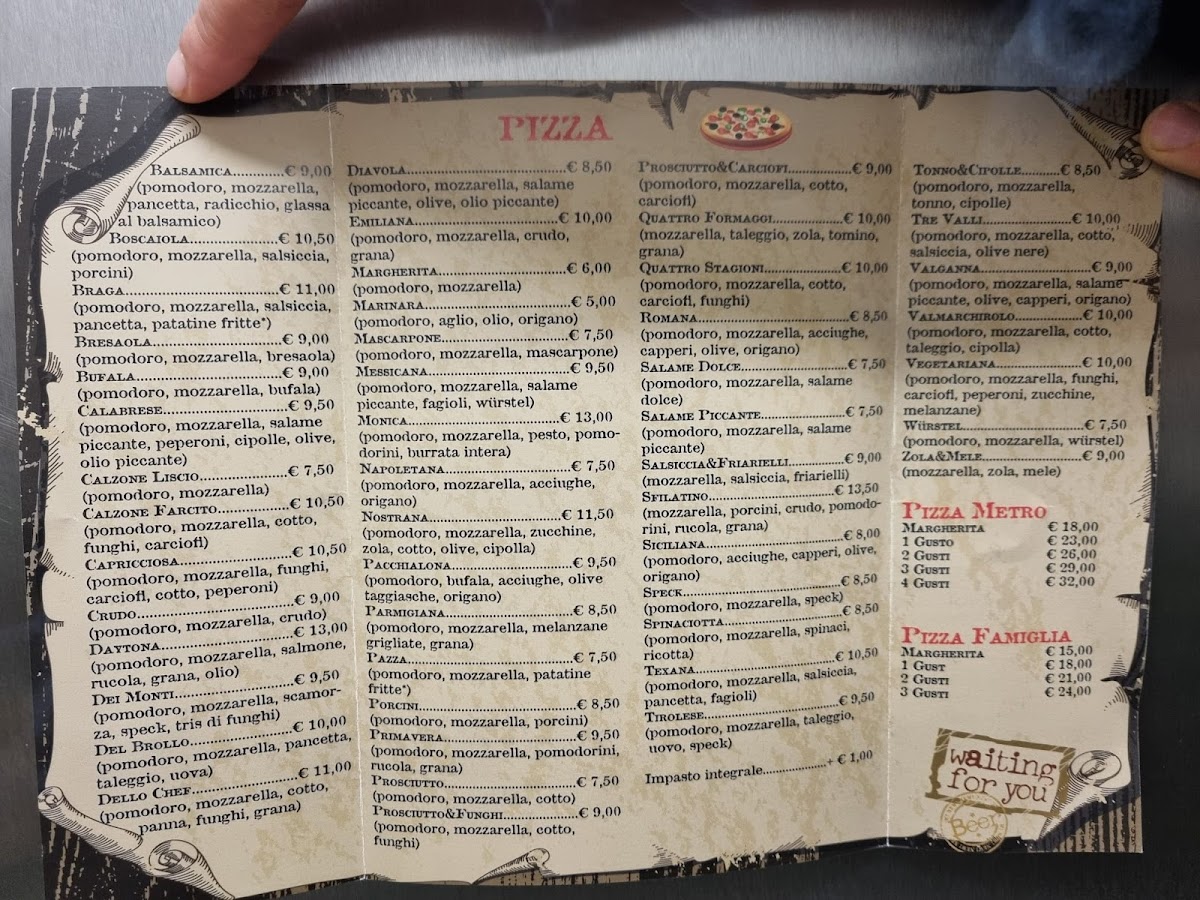 PIZZA
Balsamica..........€ 9,00
(pomodoro, mozzarella,
pancetta, radicchio, glassa
al balsamico)
Boscaiola..........€ 10,50
(pomodoro, mozzarella, salsiccia,
porcini)
Braga..........€ 11,00
(pomodoro, mozzarella, salsiccia,
pancetta, patatine fritte*)
Bresaola..........€ 9,00
(pomodoro, mozzarella, bresaola)
Bufala..........€ 9,00
(pomodoro, mozzarella, bufala)
Calabrese..........€ 9,50
(pomodoro, mozzarella, salame
piccante, peperoni, cipolle, olive,
olio piccante)
Calzone Liscio..........€ 7,50
(pomodoro, mozzarella)
Calzone Farcito..........€ 10,50
(pomodoro, mozzarella, cotto,
funghi, carciofi)
Capricciosa..........€ 10,50
(pomodoro, mozzarella, funghi,
carciofi, cotto, peperoni)
Crudo..........€ 9,00
(pomodoro, mozzarella, crudo)
Daytona..........€ 13,00
(pomodoro, mozzarella, salmone,
rucola, grana, olio)
Dei Monti..........€ 9,50
(pomodoro, mozzarella, scamor-
za, speck, tris di funghi)
Del Brollo..........€ 10,00
(pomodoro, mozzarella, pancetta,
taleggio, uova)
Dello Chef..........€ 11,00
(pomodoro, mozzarella, cotto,
panna, funghi, grana)
Diavola..........€ 8,50
(pomodoro, mozzarella, salame
piccante, olive, olio piccante)
Emiliana..........€ 10,00
(pomodoro, mozzarella, crudo,
grana)
Margherita..........€ 6,00
(pomodoro, mozzarella)
Marinara..........€ 5,00
(pomodoro, aglio, olio, origano)
Mascarpone..........€ 7,50
(pomodoro, mozzarella, mascarpone)
Messicana..........€ 9,50
(pomodoro, mozzarella, salame
piccante, fagioli, würstel)
Monica..........€ 13,00
(pomodoro, mozzarella, pesto, pomo-
dorini, burrata intera)
Napoletana..........€ 7,50
(pomodoro, mozzarella, acciughe,
origano)
Nostrana..........€ 11,50
(pomodoro, mozzarella, zucchine,
zola, cotto, olive, cipolla)
Pacchialona..........€ 9,50
(pomodoro, bufala, acciughe, olive
taggiasche, origano)
Parmigiana..........€ 8,50
(pomodoro, mozzarella, melanzane
grigliate, grana)
Pazza..........€ 7,50
(pomodoro, mozzarella, patatine
fritte*)
Porcini..........€ 8,50
(pomodoro, mozzarella, porcini)
Primavera..........€ 9,50
(pomodoro, mozzarella, pomodorini,
rucola, grana)
Prosciutto..........€ 7,50
(pomodoro, mozzarella, cotto)
Prosciutto&Funghi..........€ 9,00
(pomodoro, mozzarella, cotto,
funghi)
Prosciutto&Carciofi..........€ 9,00
(pomodoro, mozzarella, cotto,
carciofi)
Quattro Formaggi..........€ 10,00
(mozzarella, taleggio, zola, tomino,
grana)
Quattro Stagioni..........€ 10,00
(pomodoro, mozzarella, cotto,
carciofi, funghi)
Romana..........€ 8,50
(pomodoro, mozzarella, acciughe,
capperi, olive, origano)
Salame Dolce..........€ 7,50
(pomodoro, mozzarella, salame
dolce)
Salame Piccante..........€ 7,50
(pomodoro, mozzarella, salame
piccante)
Salsiccia&Friarielli..........€ 9,00
(mozzarella, salsiccia, friarielli)
Sfilatino..........€ 13,50
(mozzarella, porcini, crudo, pomodo-
rini, rucola, grana)
Siciliana..........€ 8,00
(pomodoro, acciughe, capperi, olive,
origano)
Speck..........€ 8,50
(pomodoro, mozzarella, speck)
Spinaciotta..........€ 8,50
(pomodoro, mozzarella, spinaci,
ricotta)
Texana..........€ 10,50
(pomodoro, mozzarella, salsiccia,
pancetta, fagioli)
Tirolese..........€ 9,50
(pomodoro, mozzarella, taleggio,
uovo, speck)
Impasto integrale..........+ € 1,00
Tonno&Cipolle..........€ 8,50
(pomodoro, mozzarella,
tonno, cipolle)
Tre Valli..........€ 10,00
(pomodoro, mozzarella, cotto,
salsiccia, olive nere)
Valganna..........€ 9,00
(pomodoro, mozzarella, salame
piccante, olive, capperi, origano)
Valmarchirolo..........€ 10,00
(pomodoro, mozzarella, cotto,
taleggio, cipolla)
Vegetariana..........€ 10,00
(pomodoro, mozzarella, funghi,
carciofi, peperoni, zucchine,
melanzane)
Würstel..........€ 7,50
(pomodoro, mozzarella, würstel)
Zola&Mele..........€ 9,00
(mozzarella, zola, mele)
Pizza Metro
Margherita € 18,00
1 Gusto € 23,00
2 Gusti € 26,00
3 Gusti € 29,00
4 Gusti € 32,00
Pizza Famiglia
Margherita € 15,00
1 Gust € 18,00
2 Gusti € 21,00
3 Gusti € 24,00
waiting
for you
Beer